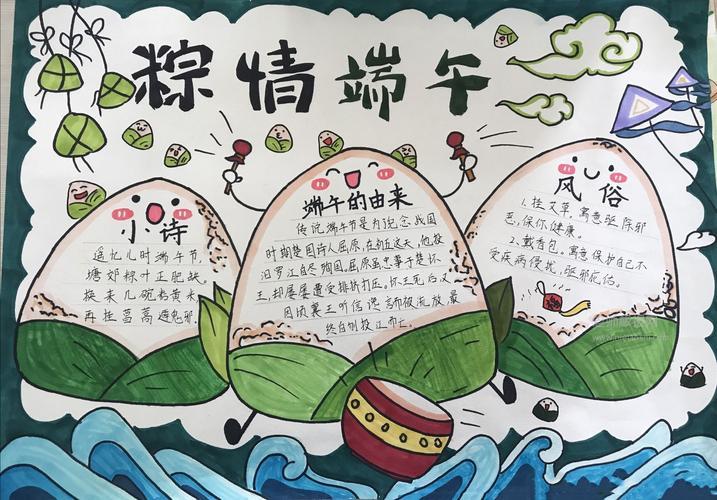 粽情端午
小诗
遥忆儿时端午节,
塘郊粽叶正肥缺。
换来几碗黄米,
再挂菖蒿避鬼邪。
端午的由来
传说端午节是为纪念战国
时期楚国诗人屈原,在初五这天,他投
汨罗江自尽殉国。屈原虽忠事于楚怀
王,却屡屡遭受排挤打压。怀王死后又
因顷襄王听信谗言而被流放,最
终自刎投江而亡。
风俗
1.挂艾草,寓意驱除邪
恶,保你健康。
2.戴香包,寓意保护自己不
受疾病侵扰,驱邪庇佑。